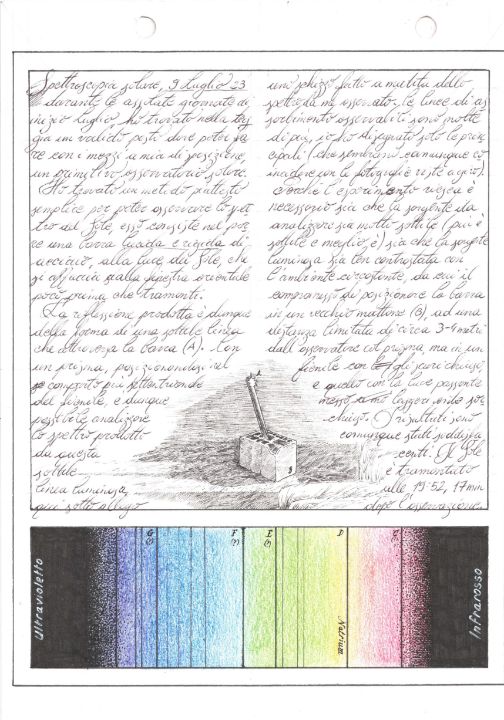 Spettroscopia solare, 9 Luglio 23
durante le assolate giornate di
inizio Luglio ho trovato nella log
gia un valido posto dove poter fa
re con i mezzi a mia disposizione,
un primitivo osservatorio solare.
Ho trovato un metodo piuttosto
semplice per poter osservare lo spet
tro del Sole, esso consiste nel por
re una barra lucida e rigida di
acciaio, alla luce del Sole, che
si affaccia dalla finestra orientale
poco prima che tramonti.
La riflessione prodotta è dunque
della forma di una sottile linea
che attraversa la barca (A). Con
un prisma, posizionandosi nel
composto più settentrionale
del fienile, è dunque
possibile analizzare
lo spettro prodotto
da questa
sottile
linea luminosa,
qui sotto allego
uno schizzo fatto a matita dello
spettro da me osservato, le linee di as
sorbimento osservabili sono molte
di più, io ho disegnato solo le prin
cipali (che sembrano comunque co
incidere con le fotografie viste a gio).
Perché l'esperimento riesca è
necessario sia che la sorgente da
analizzare sia molto sottile (più è
sottile e meglio è) sia che la sorgente
luminosa sia ben contrastata con
l'ambiente circostante, da cui il
compromesso di posizionare la barra
in un vecchio mattone (B), ad una
distanza limitata di circa 3-4 metri
dall'osservatore col prisma, ma in un
fienile con gli scuri chiusi,
e quello con la luce passante
messo a mo' leggermente soc
chiuso. I risultati sono
comunque stati soddisfa
centi. Il Sole
è tramontato
alle 19:52, 17 min
dopo l'osservazione.
A
B
Ultravioletto
G
(?)
F
(?)
E
(?)
D
Natrium
C
Infrarosso